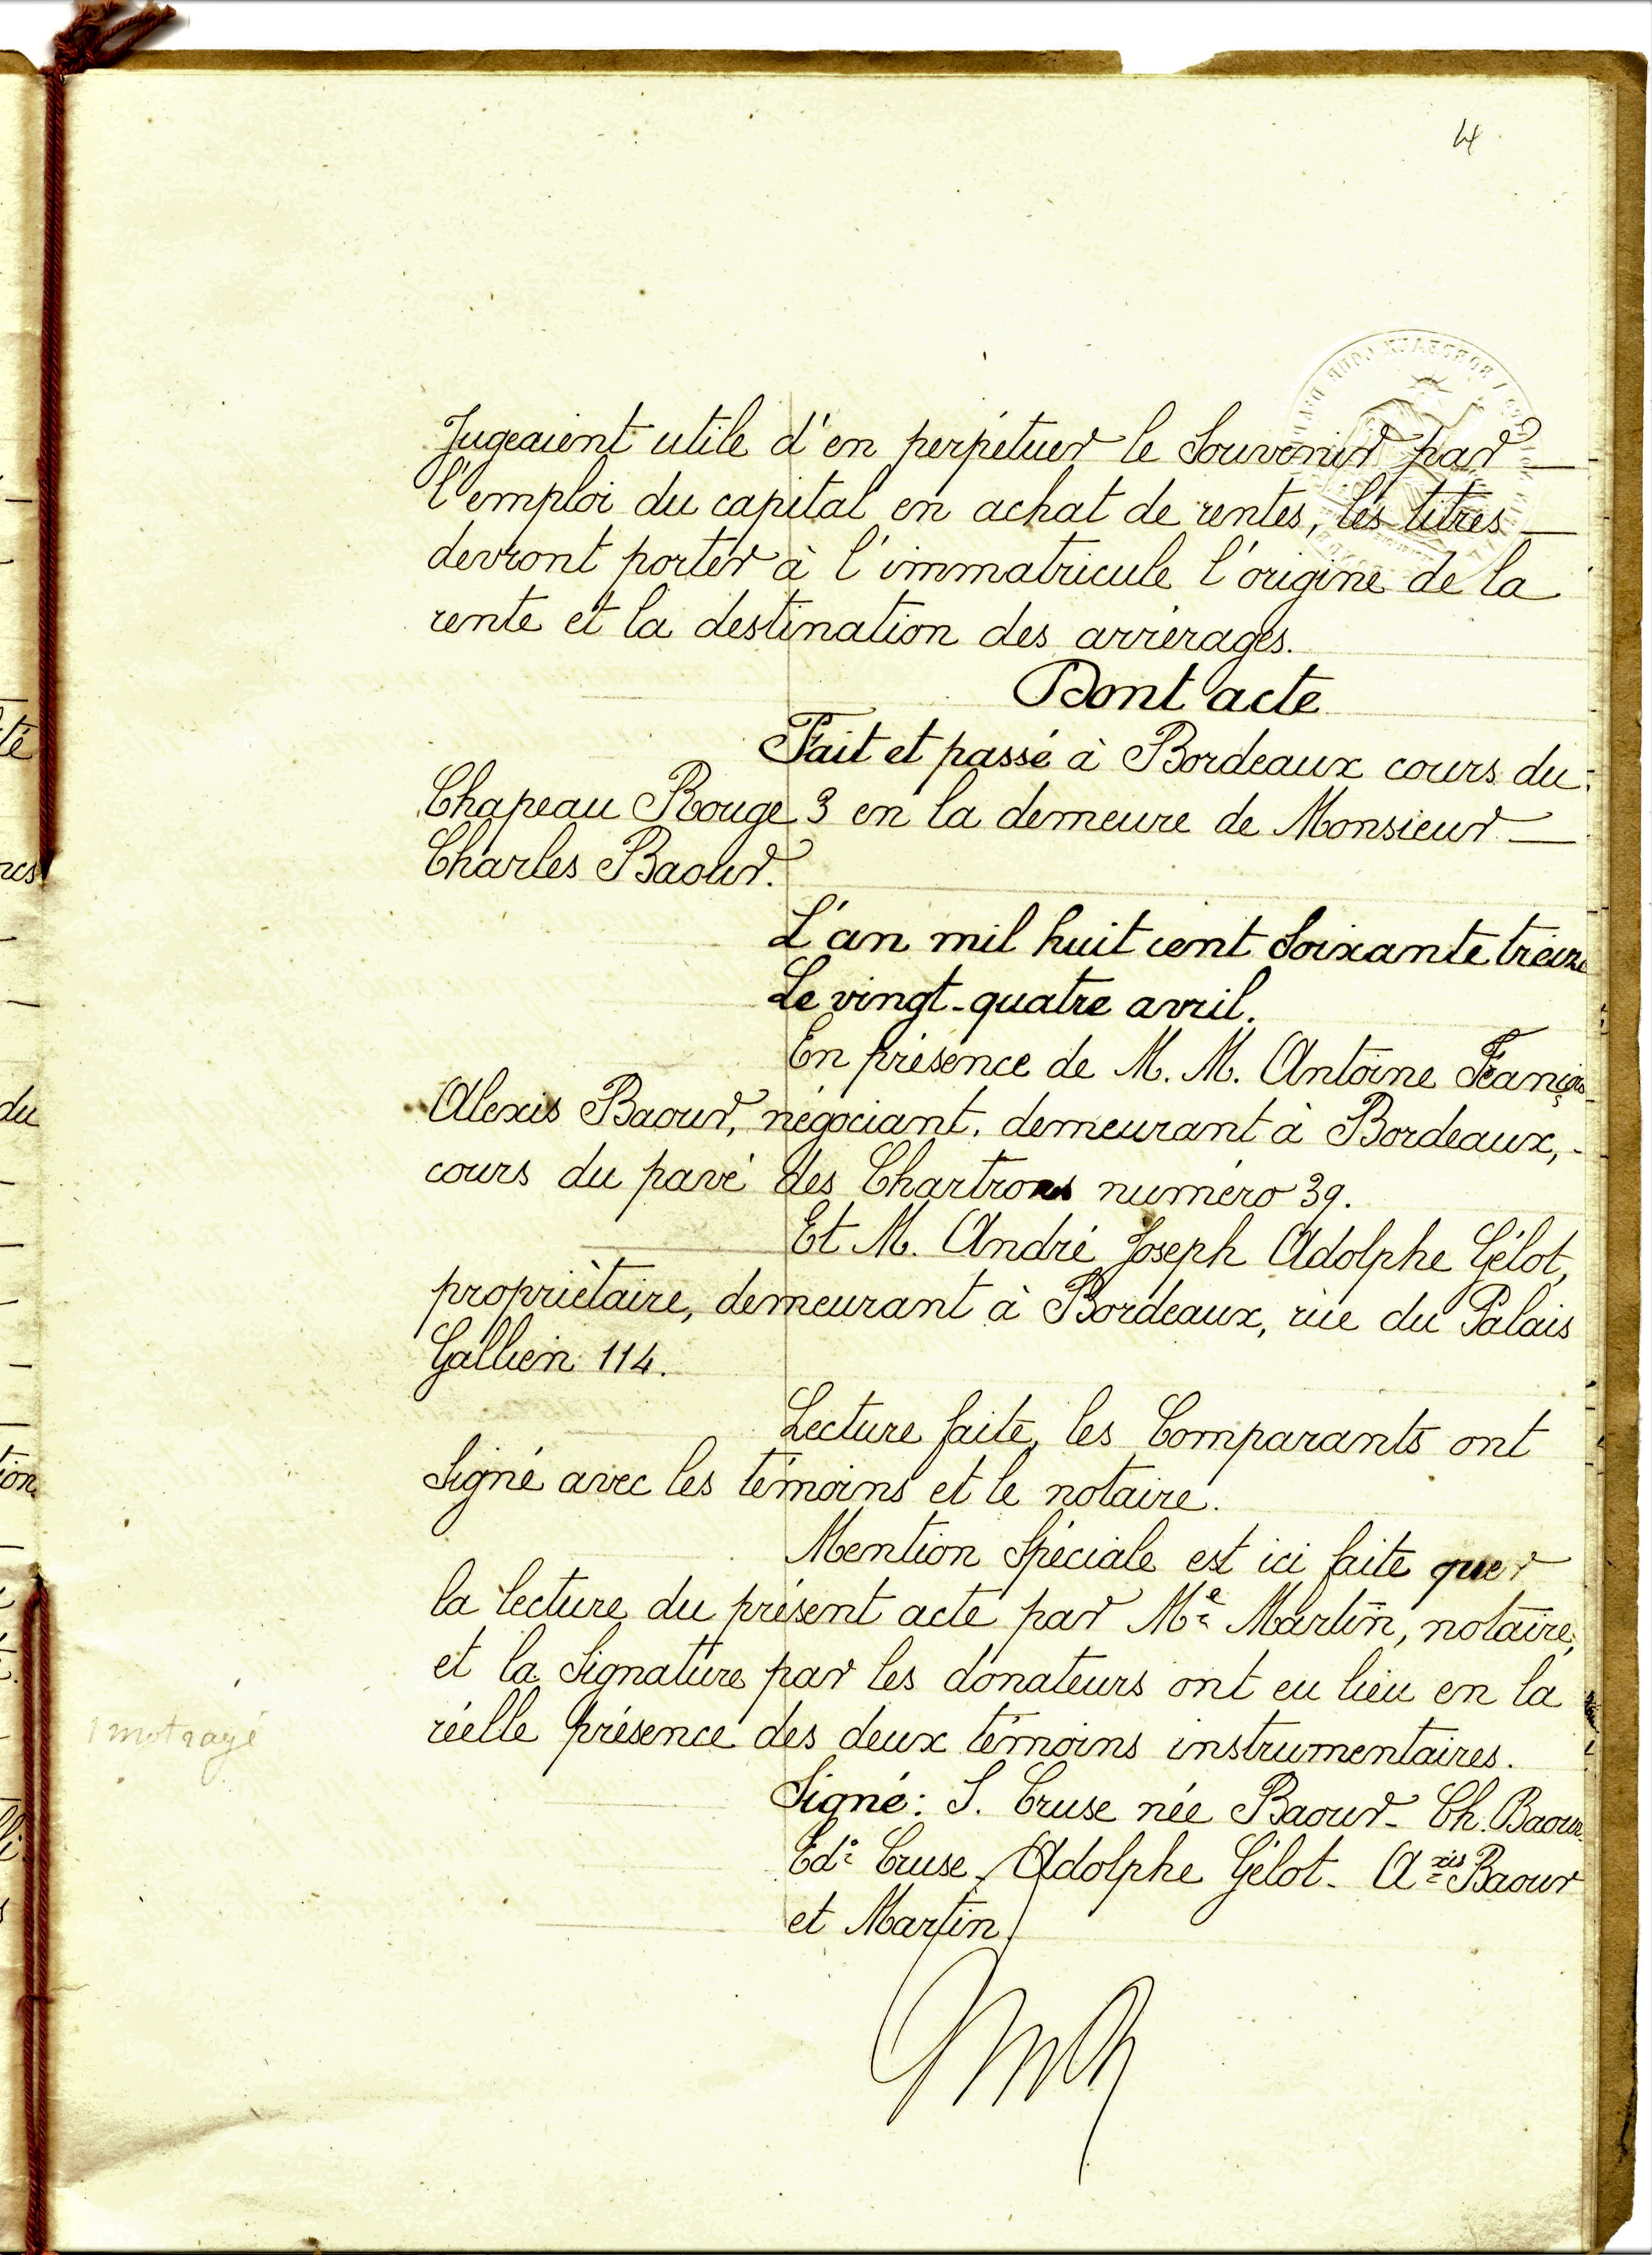 4
Jugeaient utile d'en perpétuer le Souvenir par
l'emploi du capital en achat de rentes, les titres
devront porter à l'immatricule l'origine de la
rente et la destination des arrérages.
Dont acte
Fait et passé à Bordeaux cours du
Chapeau Rouge 3 en la demeure de Monsieur
Charles Baour.
L'an mil huit cent Soixante treize
Le vingt-quatre avril.
En présence de M. M. Antoine François
Alexis Baour, négociant, demeurant à Bordeaux,
cours du pavé des Chartrons numéro 39.
Et M. André Joseph Adolphe Gélot,
propriétaire, demeurant à Bordeaux, rue du Palais
Gallien 114.
Lecture faite, les Comparants ont
Signé avec les témoins et le notaire.
Mention Spéciale est ici faite que
la lecture du présent acte par Me Martin, notaire,
et la Signature par les donateurs ont eu lieu en la
réelle présence des deux témoins instrumentaires.
1 mot rayé
Signé: S. Cruse née Baour - Ch. Baour
Ed. Cruse, Adolphe Gélot - Axis Baour
et Martin